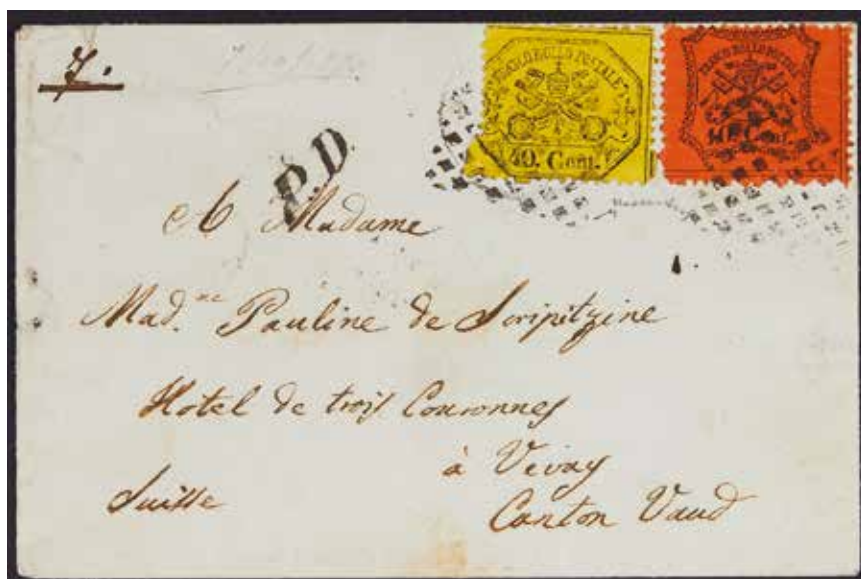 7.
FRANCO BOLLO POSTALE
40. Cent.
FRANCO BOLLO POSTALE
10 Cent.
P.D.
Madame
Mad.me Pauline de Soripitzine
Hotel de trois Couronnes
à Vevay
Suisse
Canton Vaud